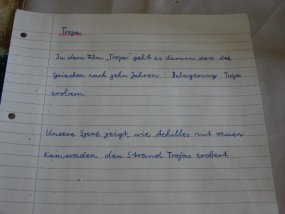 Troja
In dem Film "Troja" geht es darum, das die
Griechen nach zehn Jahren Belagerung Troja
erobern.
Unsere Szene zeigt, wie Achilles mit seinen
Kameraden den Strand Trojas erobert